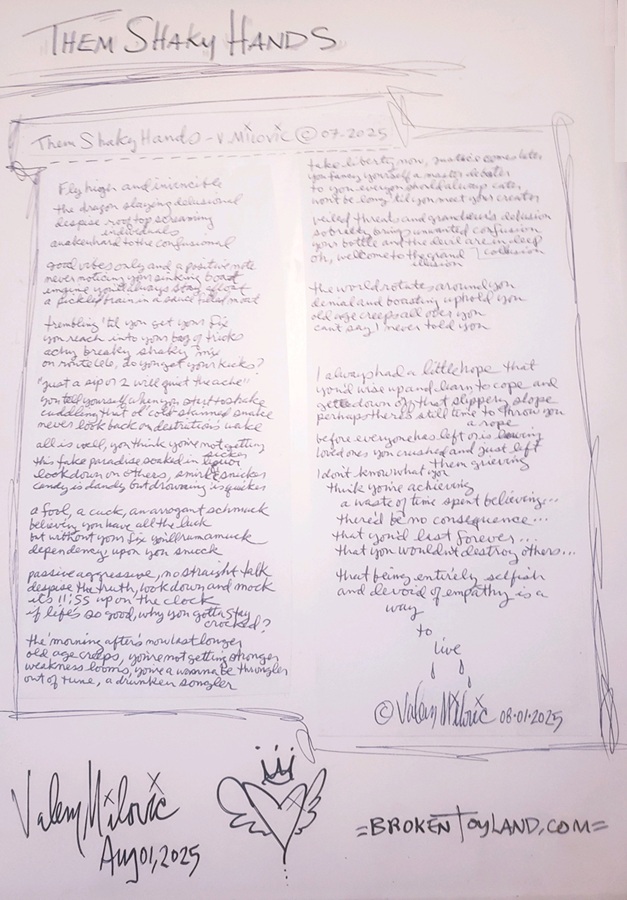 Them Shaky Hands
Them Shaky Hands - V. Milovic © 07-2025
Fly high and invincible
the dragon slaying delusional
despise rooftop screaming
individuals
awaken hard to the confusional
good vibes only and a positive note
never noticing your sinking boat
imagine you'll always stay afloat
a pickled brain in a moat
trembling 'til you get your fix
you reach into your bag of tricks
achy breaky shaky mix
on route 66, do you get your kicks?
"just a sip or 2 will quiet the ache"
you tell yourself when you start to shake
cuddling that ol' cold skinned snake
never look back on destrutions wake
all is well, you think you're not getting
sicker
this fake paradise soaked in liquor
look down on others, smirk + snicker
candy is dandy but drowning is quicker
a fool, a cuck, an arrogant schmuck
believing you have all the luck
but without your fix you'll run amuck
dependency upon you smock
passive aggressive, no straight talk
despise the truth, look down and mock
its 11:55 upon the clock
if life's so good, why you gotta stay
crocked?
the 'morning after's now last longer
old age creeps, you're not getting stronger
weakness looms, you're a wanna be
out of tune, a drunken songler
take liberty now, justice comes later
you fancy yourself a master debater
to you everyone should always cater
won't be long 'til you meet your creator
veiled threats and grandeur's delusion
sobriety brings unwanted confusion
your bottle and the devil are in deep
collusion
oh, welcome to the grand
illusion
the world rotates around you
denial and boasting uphold you
old age creeps all over you
can't say I never told you
I always had a little hope that
you'd wise up and learn to cope and
get down off that slippery slope
perhaps there's still time to throw you
a rope
before everyone has left or is leaving
loved ones you crushed and just left
them grieving
I don't know what you
think you're achieving
a waste of time spent believing...
there'd be no consequence...
that you'd last forever...
that you wouldn't destroy others...
that being entirely selfish
and devoid of empathy is a
way
to
live
© Valery Milovic 08-01-2025
Valery Milovic
Aug 01, 2025
=BrokenToyland.com=